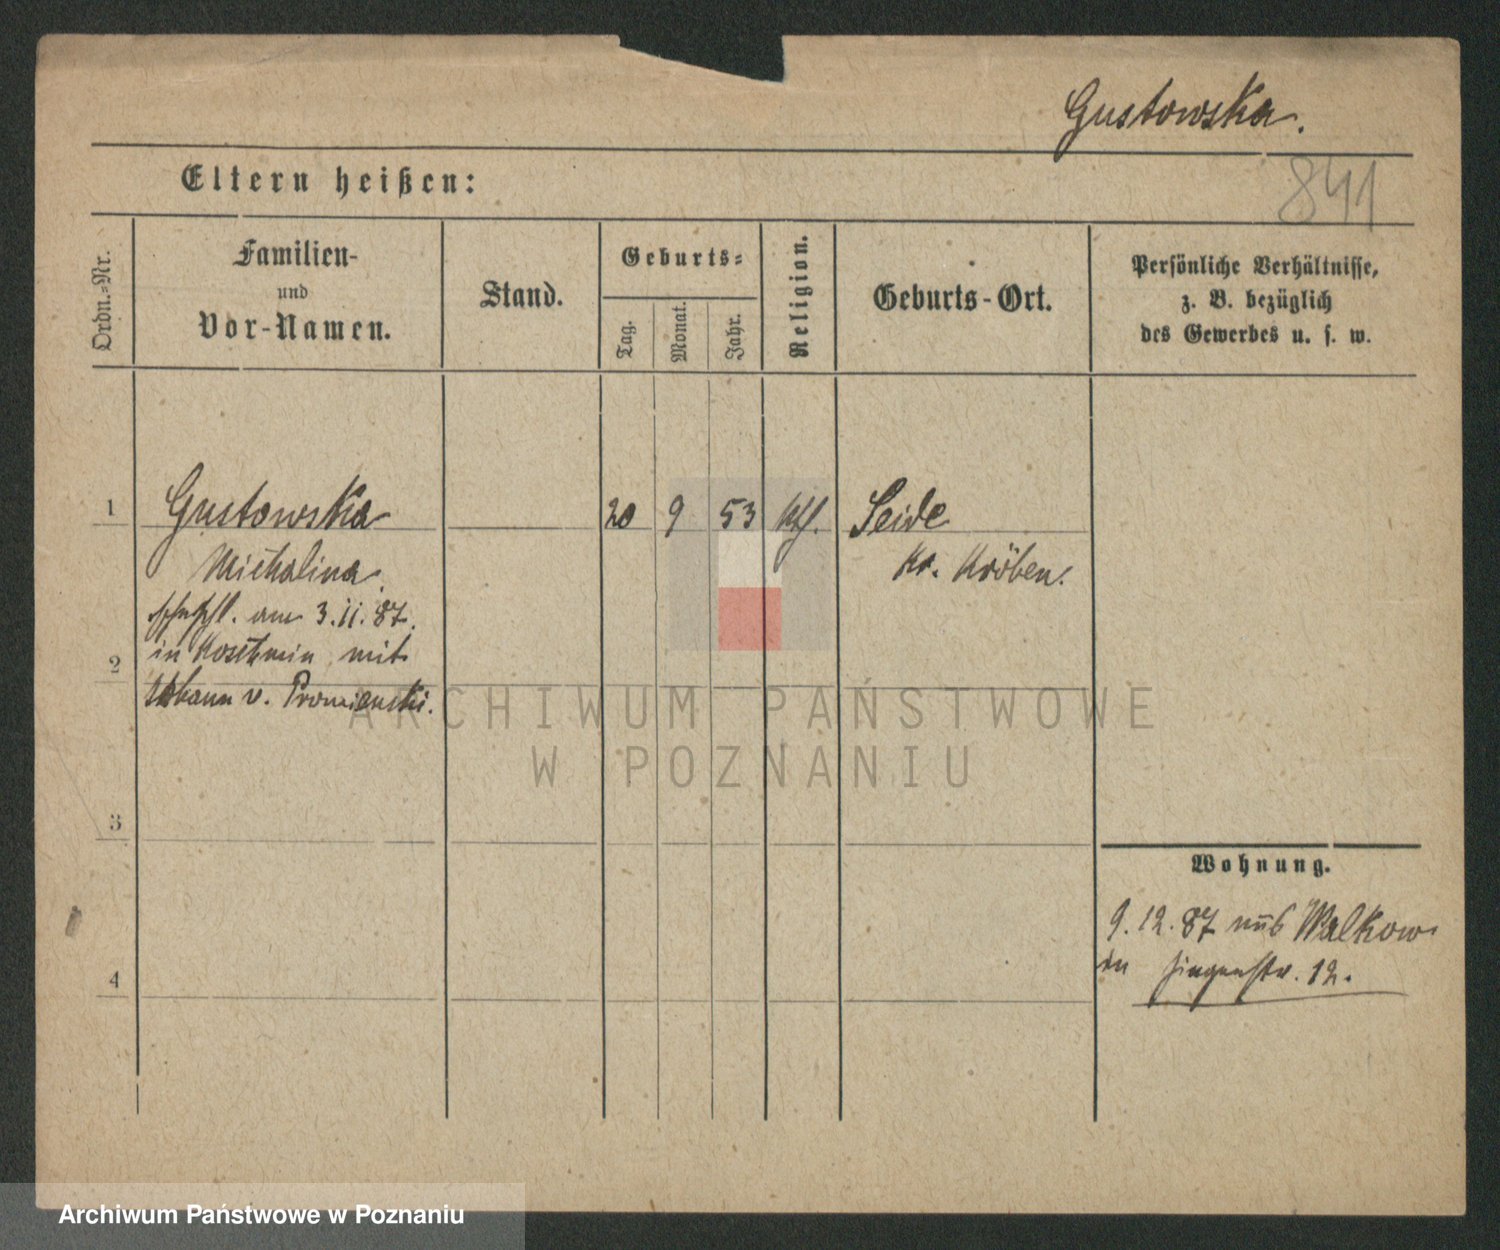 Gustowska.
841
Eltern heißen:
Ordn.-Nr.
Familien-
und
Vor-Namen.
Stand.
Geburts-
Tag.
Monat.
Jahr.
Religion.
Geburts-Ort.
Persönliche Verhältnisse,
z. B. bezüglich
des Gewerbes u. s. w.
1 Gustowska 20 9 53 kth. Seide
Michalina. Kr. Kröben.
am 3.11.87.
in Koschmin mit
2
Johann v. Promienski.
3
Wohnung.
9.12.87 aus Walkow
in
4
12.
ARCHIWUM PAŃSTWOWE
W POZNANIU
Archiwum Państwowe w Poznaniu